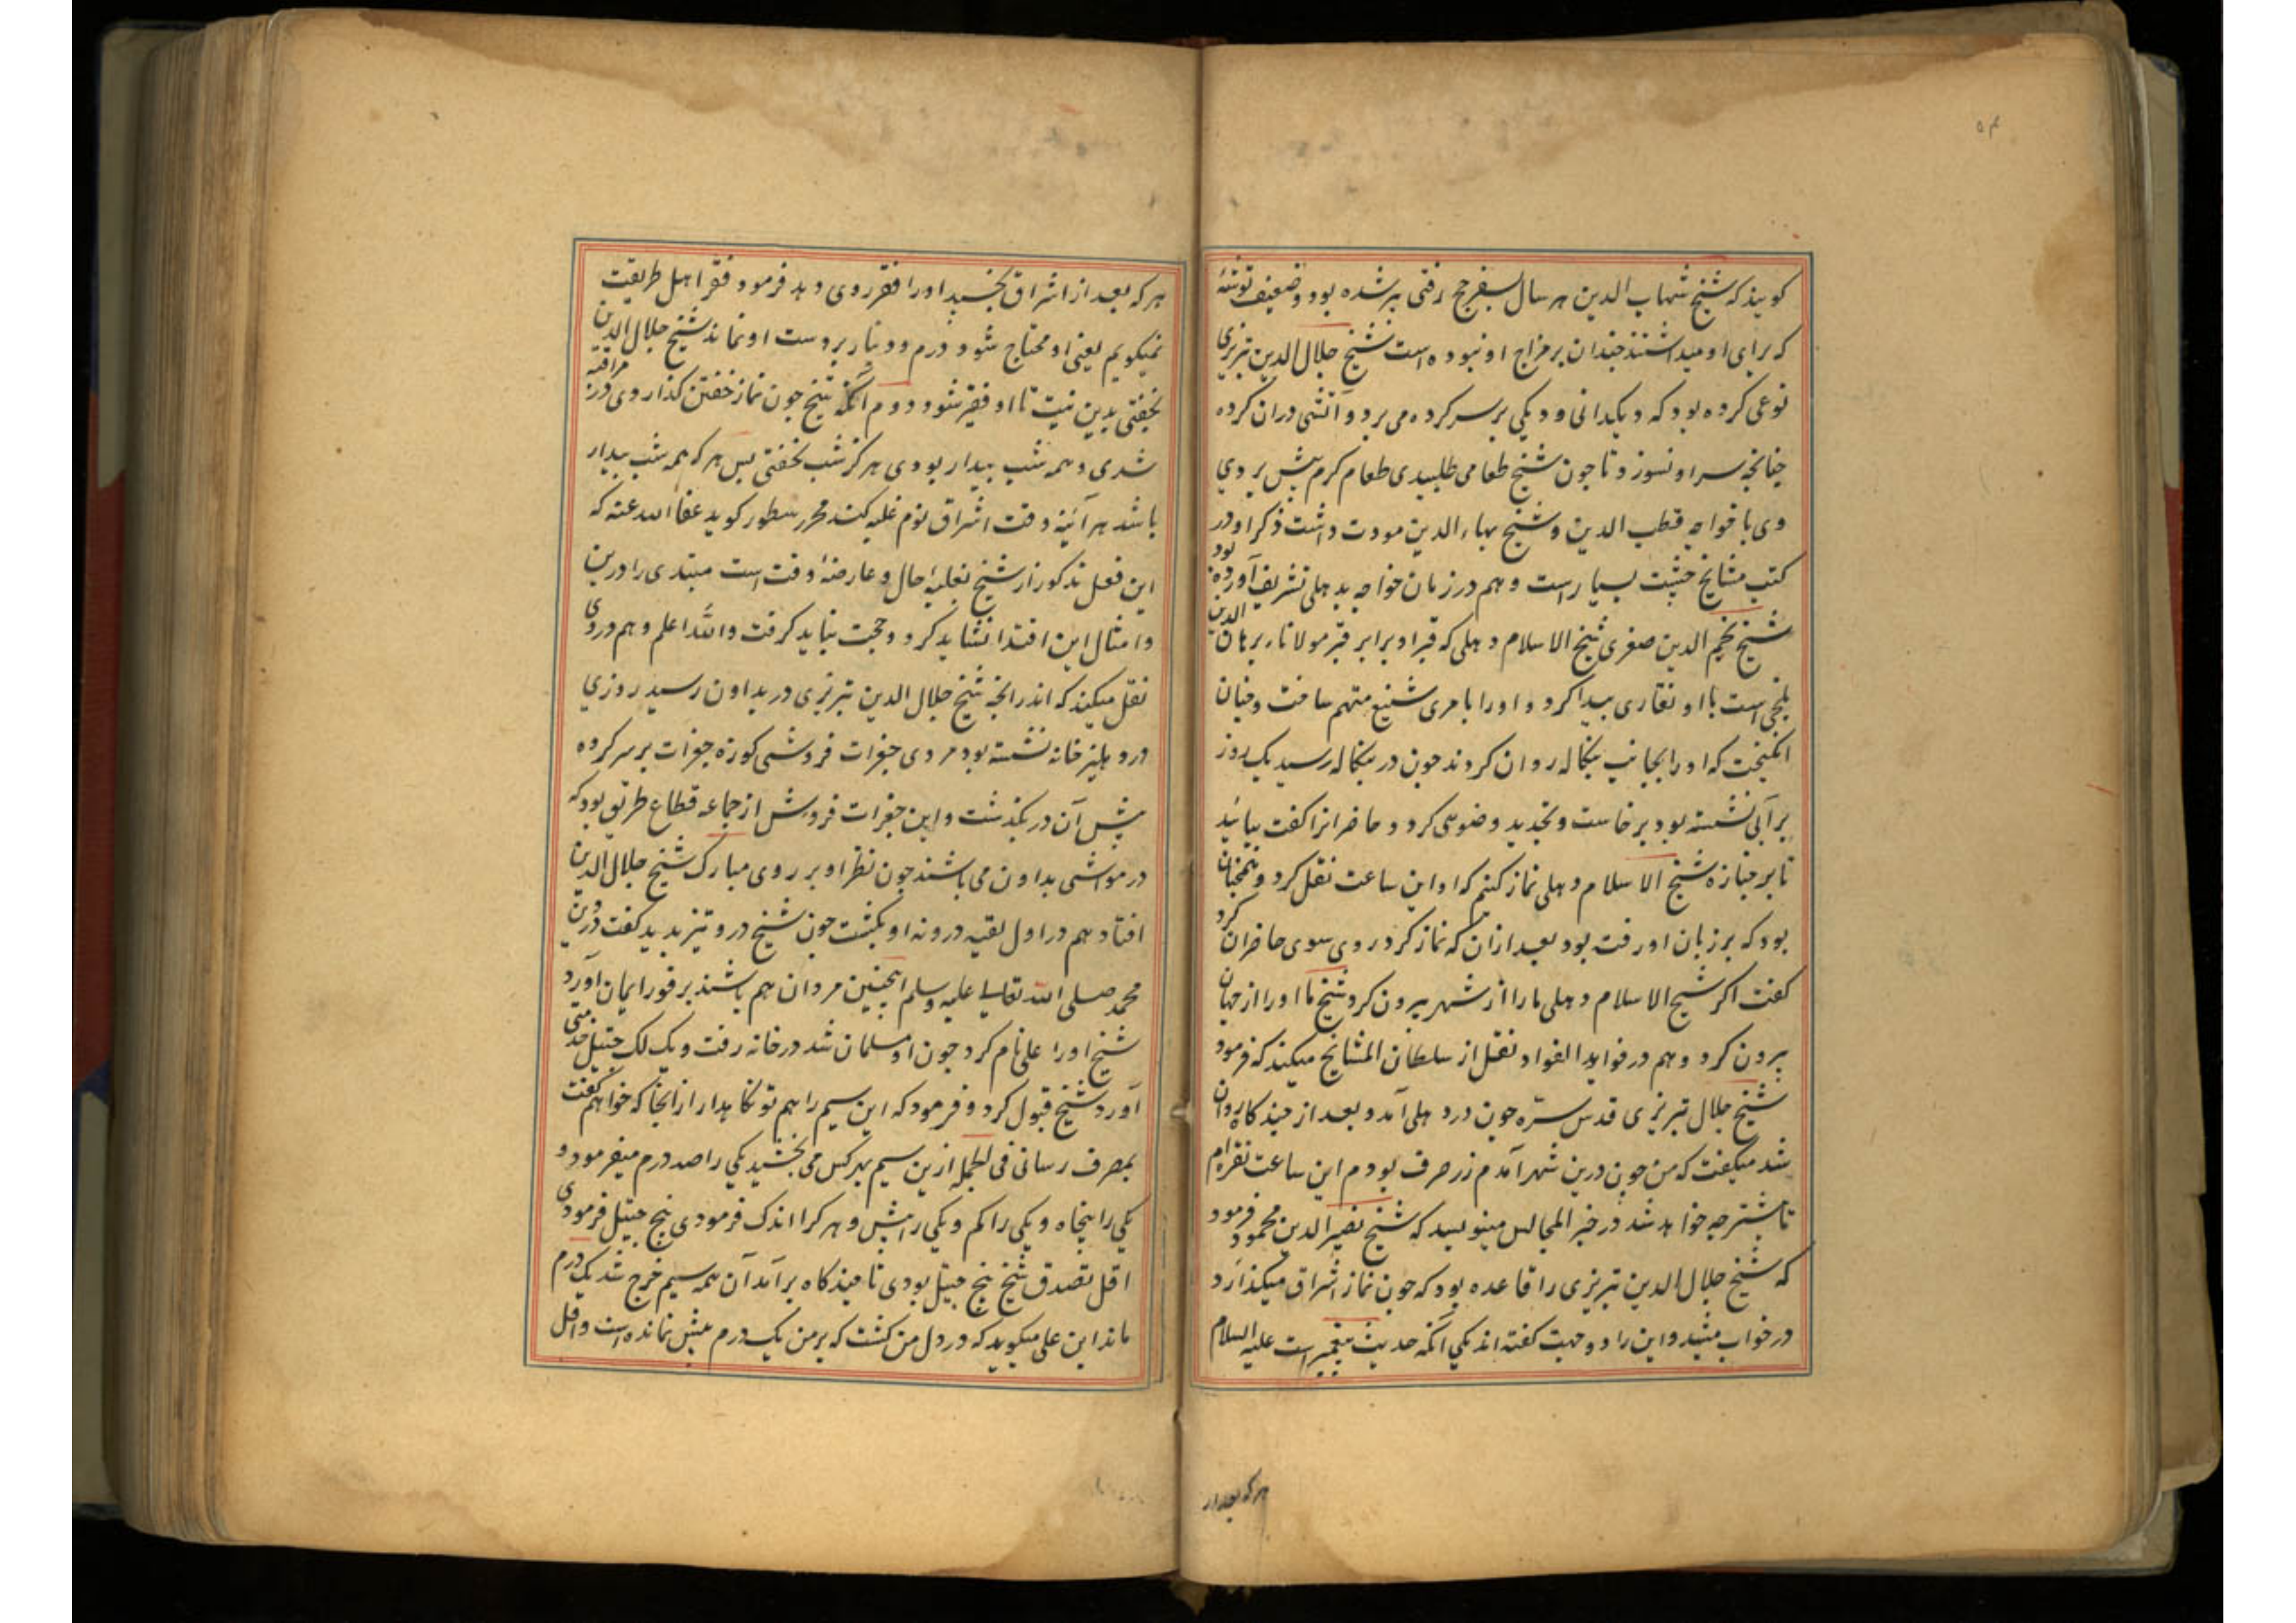 ۵۴
گویند که شیخ شهاب الدین هر سال بسفر حج رفتی پیر شده بود و ضعیف توشهٔ
که برای او میداشتند چندان بر مزاج او نبوده است شیخ جلال الدین تبریزی
نوعی کرده بود که دیکدانی و دیکی بر سر کرده می برد و آتشی دران کرده
چنانچه سر او نسوزد تا چون شیخ طعامی طلبیدی طعام کرم پیش بردی
وی با خواجه قطب الدین و شیخ بهاء الدین مودت داشت ذکر او در
کتب مشایخ چشت بسیار است و هم در زمان خواجه بدهلی تشریف آورده بود
شیخ نجم الدین صغری شیخ الاسلام دهلی که قبر او برابر قبر مولانا برهان الدین
بلخی است با او نقاری پیدا کرد و اورا بامری شنیع متهم ساخت و چنان
انکیخت که اورا بجانب بنکاله روان کردند چون در بنکاله رسید یک روز
بر آبی نشسته بود برخاست و تجدید وضوی کرد و حاضرانرا کفت بیائید
تا بر جنازه شیخ الاسلام دهلی نماز کنیم که او این ساعت نقل کرد و همچنان
بود که بر زبان او رفت بود بعد ازان که نماز کرد روی سوی حاضران کرد
کفت اکر شیخ الاسلام دهلی مارا از شهر بیرون کرد شیخ ما اورا از جهان
بیرون کرد و هم در فواید الفواد نقل از سلطان المشایخ میکند که فرمود
شیخ جلال تبریزی قدس سره چون در دهلی آمد و بعد از چند کاه روان
شد میکفت که من چون درین شهر آمدم زر صرف بودم این ساعت نقره ام
تا پیشتر چه خواهد شد در خیر المجالس مینویسد که شیخ نصیر الدین محمود فرمود
که شیخ جلال الدین تبریزی را قاعده بود که چون نماز اشراق میکذارد
در خواب میشد و این را دو جهت کفته اند یکی آنکه حدیث پیغمبر است علیه السلام
هر که بعد از
هر که بعد از اشراق بخسپد اورا فقر روی دهد فرمود فقر اهل طریقت
نمیکویم یعنی او محتاج شود و درم و دینار بر دست او نماند شیخ جلال الدین
بخفتی بدین نیت تا او فقیر شود دوم آنکه شیخ چون نماز خفتن کذاردی در مراقبه
شدی و همه شب بیدار بودی هرکز شب نخفتی پس هر که همه شب بیدار
باشد هر آئینه وقت اشراق نوم غلبه کند محرر سطور کوید عفا الله عنه که
این فعل مذکور از شیخ بغلبهٔ حال و عارضهٔ وقت است مبتدی را درین
و امثال این اقتدا نشاید کرد و حجت نباید کرفت والله اعلم و هم در وی
نقل میکند که اندرانچه شیخ جلال الدین تبریزی در بداون رسید روزی
در دهلیز خانه نشسته بود مردی جغرات فروشی کوزه جغرات بر سر کرده
پیش آن در بکذشت و این جغرات فروش از جماعه قطاع طریق بود که
در مواشی بداون می باشند چون نظر او بر روی مبارک شیخ جلال الدین
افتاد هم در اول لقیه درونه او بکشت چون شیخ درو تیز بدید کفت در دین
محمد صلی الله تعالی علیه وسلم اینچنین مردان هم باشند بر فور ایمان آورد
شیخ اورا علی نام کرد چون او مسلمان شد در خانه رفت و یک لک جیتیل خدمتی
آورد شیخ قبول کرد و فرمود که این سیم را هم تو نکاهدار ازانجا که خواهم کفت
بمصرف رسانی فی الجمله ازین سیم بهر کس می بخشید یکی را صد درم میفرمود و
یکی را پنجاه و یکی را کم و یکی را بیش و هر کرا اندک فرمودی پنج جیتیل فرمودی
اقل تصدق شیخ پنج جیتیل بودی تا چند کاه برآمد آن همه سیم خرج شد یک درم
ماند این علی میکوید که در دل من کشت که بر من یک درم بیش نمانده است و اقل